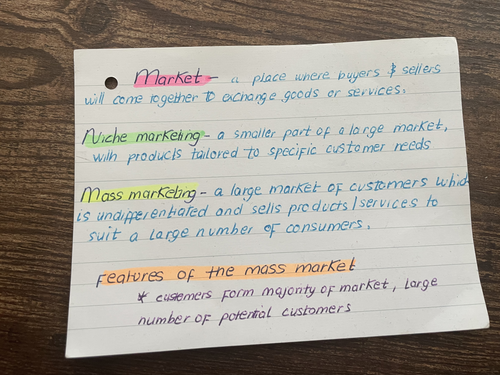 Market - a place where buyers & sellers
will come together to exchange goods or services.
Niche marketing - a smaller part of a large market,
with products tailored to specific customer needs
Mass marketing - a large market of customers which
is undifferentiated and sells products/services to
suit a large number of consumers.
Features of the mass market
* customers form majority of market, large
number of potential customers